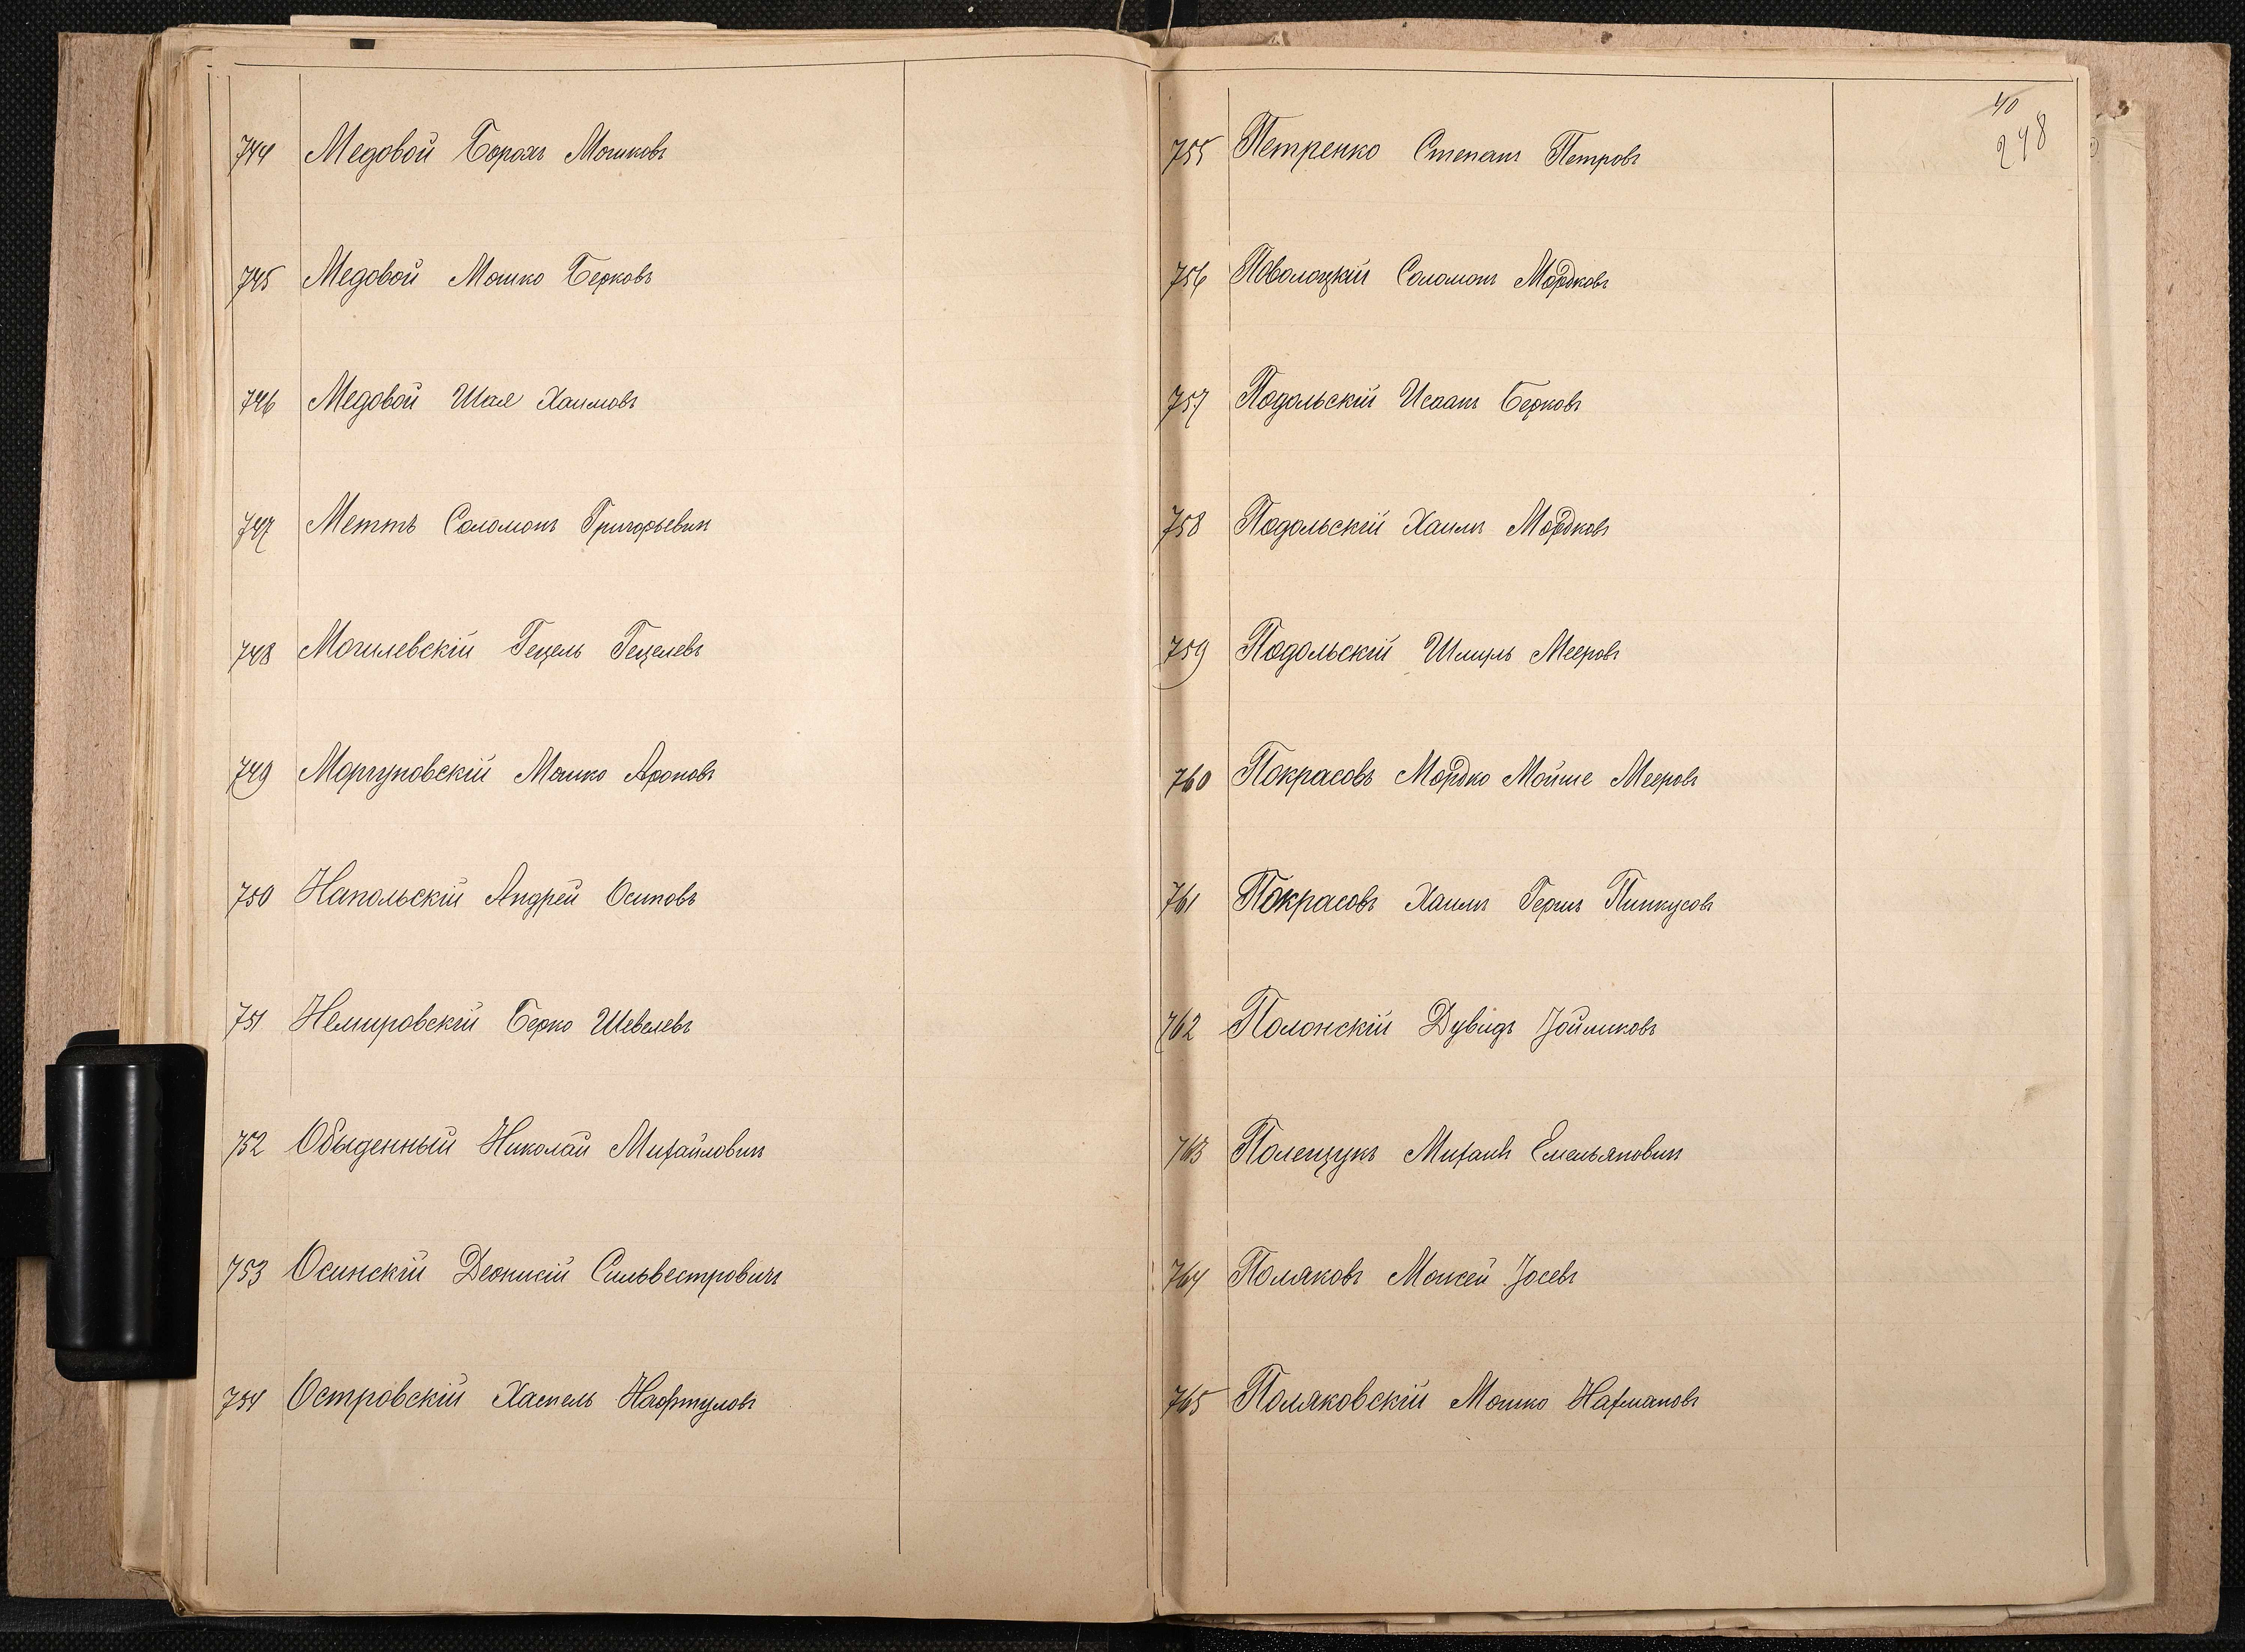 744 Медовой Борохъ Мошковъ
745 Медовой Мошко Берковъ
746 Медовой Шая Хаимовъ
747 Меттъ Соломонъ Григорьевич
748 Могилевскій Гецель Гецелевъ
749 Моргуновскій Мошко Ароновъ
750 Напольскій Андрей Осиповъ
751 Немировскій Берко Шевелевъ
752 Обыденный Николай Михайлович
753 Осинскій Деонисій Сильвестровичъ
754 Островскій Хаскель Нафтуловъ
40
248
755 Петренко Степанъ Петровъ
756 Поволоцкій Соломонъ Мордковъ
757 Подольскій Исаакъ Берковъ
758 Подольскій Хаимъ Мордковъ
759 Подольскій Шмуль Мееровъ
760 Покрасовъ Мордко Мойше Мееровъ
761 Покрасовъ Хаимъ Гершъ Пинкусовъ
762 Полонскій Дувидъ
763 Полещукъ Михаилъ Емельянович
764 Поляковъ Моисей Іосевъ
765 Поляковскій Мошко Нахмановъ